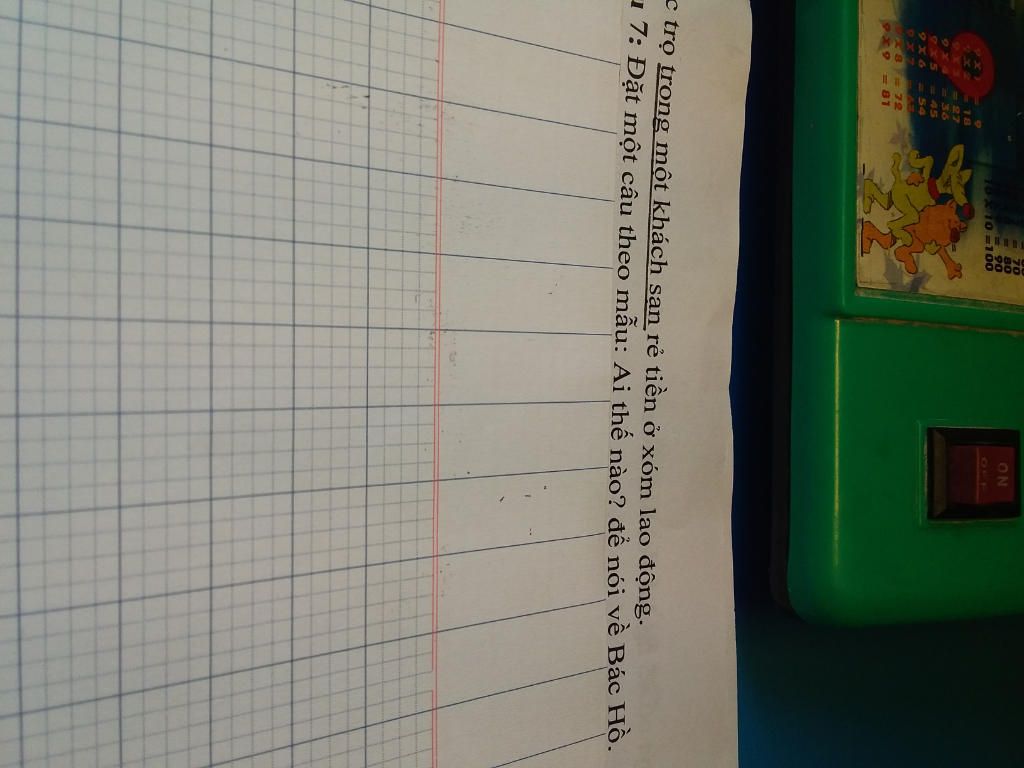 trọ trong một khách sạn rẻ tiền ở xóm lao động.
7: Đặt một câu theo mẫu: Ai thế nào? để nói về Bác Hồ.
9 x 4 = 36
9 x 5 = 45
9 x 6 = 54
9 x 8 = 72
9 x 9 = 81
10 x 10 = 100
ON
OFF